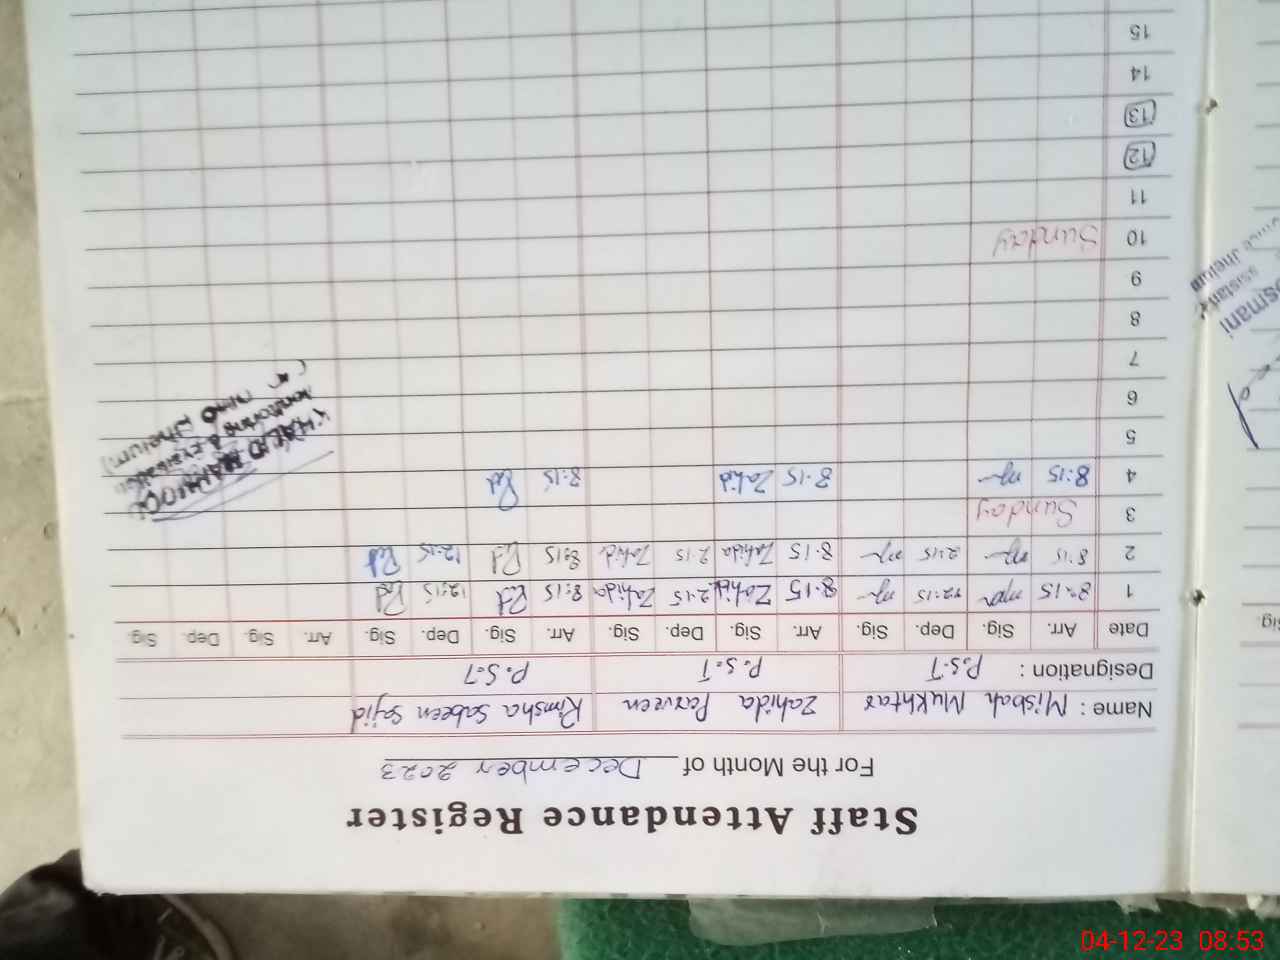 Staff Attendance Register
For the Month of December 2023
Name : Misbah Mukhtar Zahida Parveen Rimsha Sabeen Sajid
Designation : P.S.T P.S.T P.S.T
Date Arr. Sig. Dep. Sig. Arr. Sig. Dep. Sig. Arr. Sig. Dep. Sig. Arr. Sig. Dep. Sig.
1 8:15 12:15 8:15 Zahida 12:15 Zahida 8:15 12:15
2 8:15 2:15 8:15 Zahida 2:15 Zahid 8:15 12:15
3 Sunday
4 8:15 8:15 Zahid 8:15
5
6
7
8
9
10 Sunday
11
12
13
14
15
KHALID MAHMOOD
Monitoring & Evaluation
Jhelum)
smani
Jhelum
Sig.
04-12-23 08:53